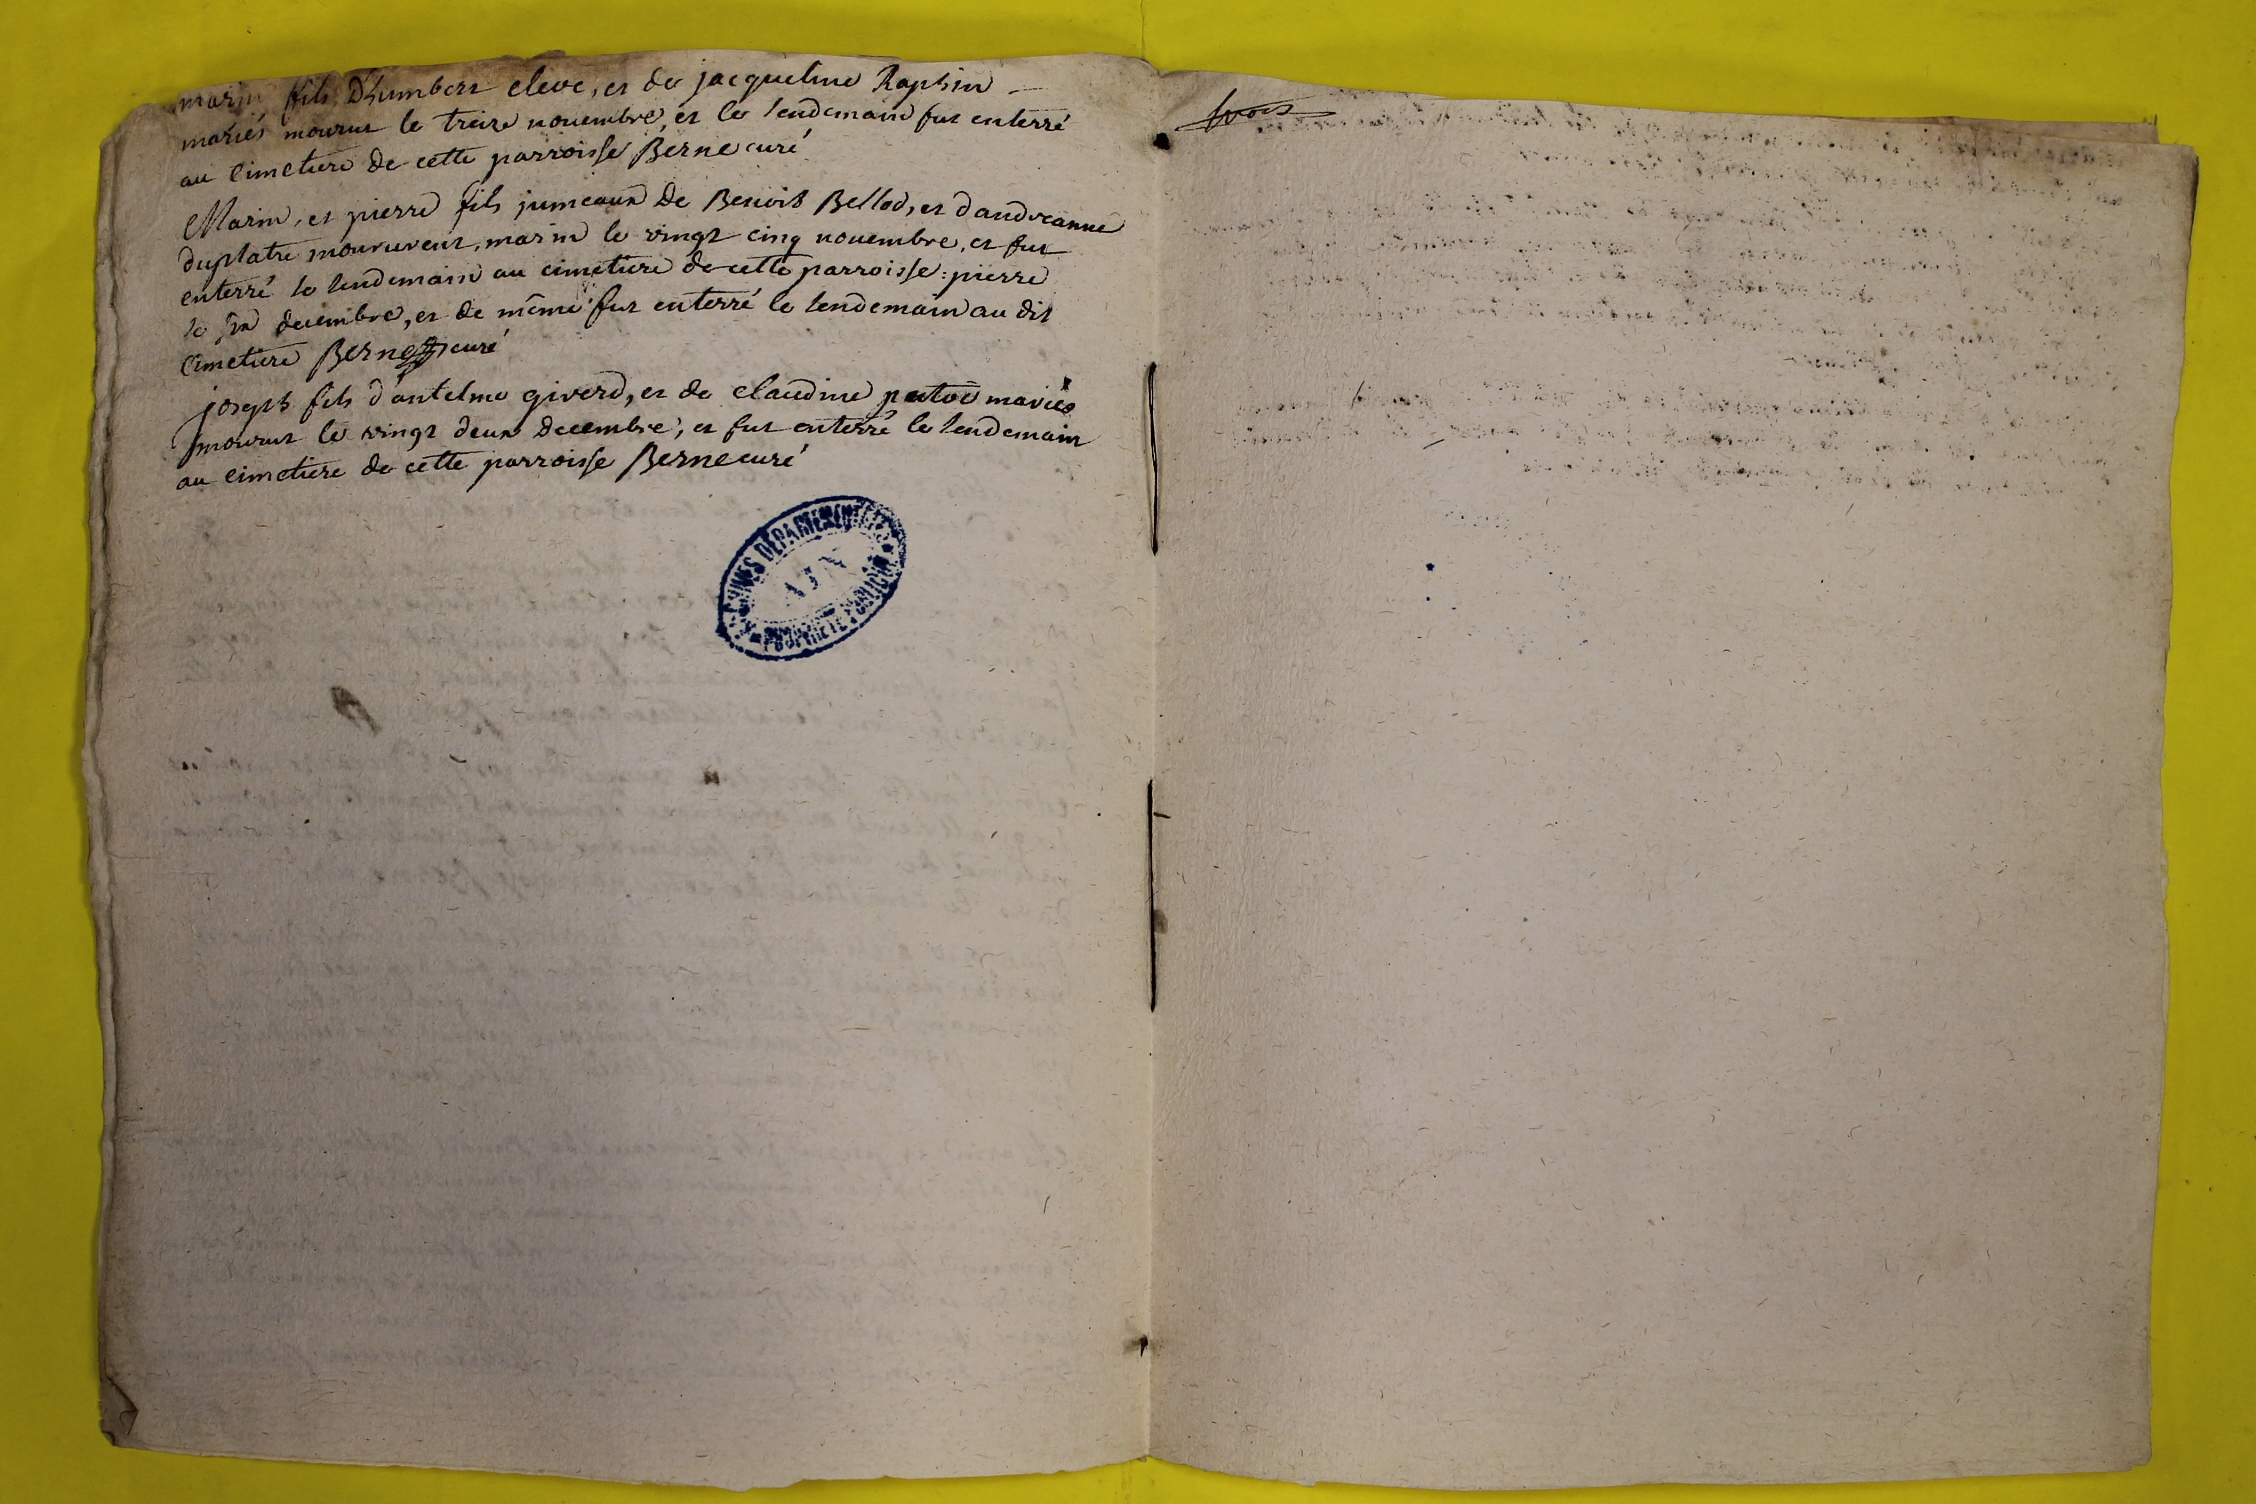 marin fils D'humbert eleve, et de jacqueline Raphin
mariés mourut le treize novembre, et le lendemain fut enterré
au cimetiere de cette parroisse Berne curé
Marin, et pierre fils jumeaux de Benoit Bellod, et d'andreanne
duplatre moururent, marin le vingt cinq novembre, et fut
enterré le lendemain au cimetiere de cette parroisse: pierre
le decembre, et de même fut enterré le lendemain au dit
cimetiere Berne curé
joseph fils d'antelme giverd, et de claudine mariés
mourut le vingt deux decembre, et fut enterré le lendemain
au cimetiere de cette parroisse Berne curé
ARCHIVES DÉPARTEMENTALES
AIN
PROPRIÉTÉ PUBLIQUE